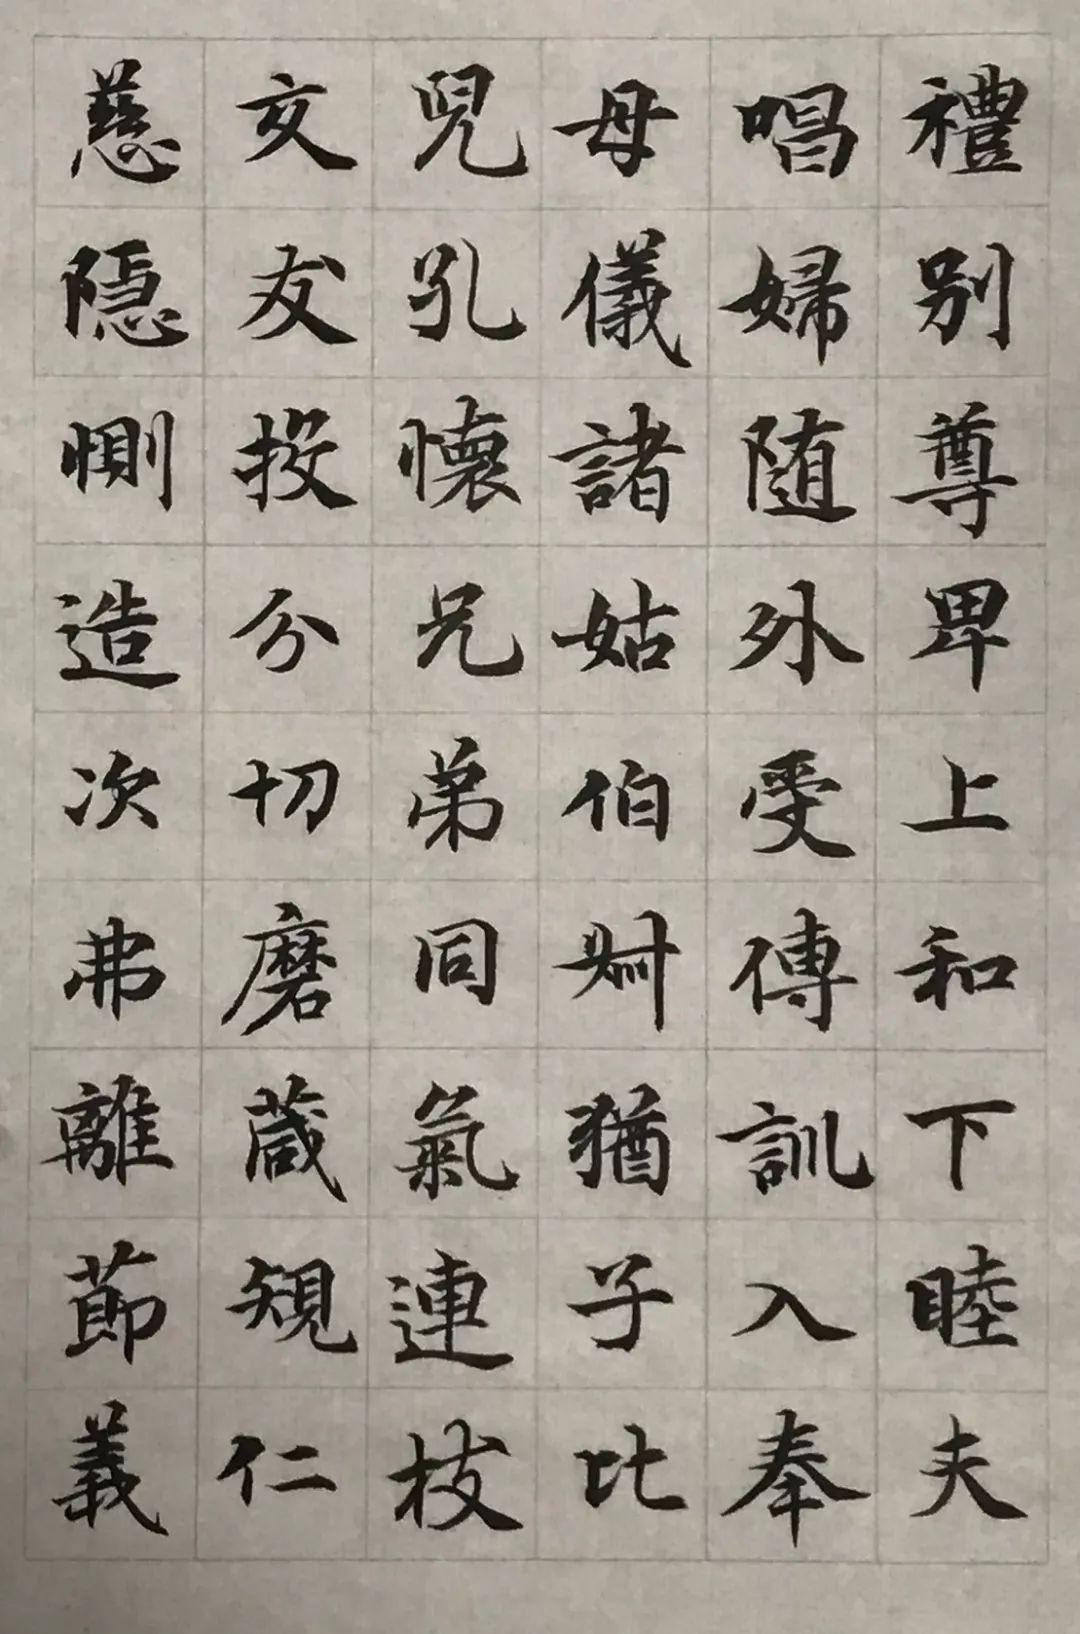 禮別尊卑上和下睦夫
唱婦随外受傅訓入奉
母儀諸姑伯叔猶子比
兒孔懷兄弟同氣連枝
交友投分切磨箴規仁
慈隱惻造次弗離節義